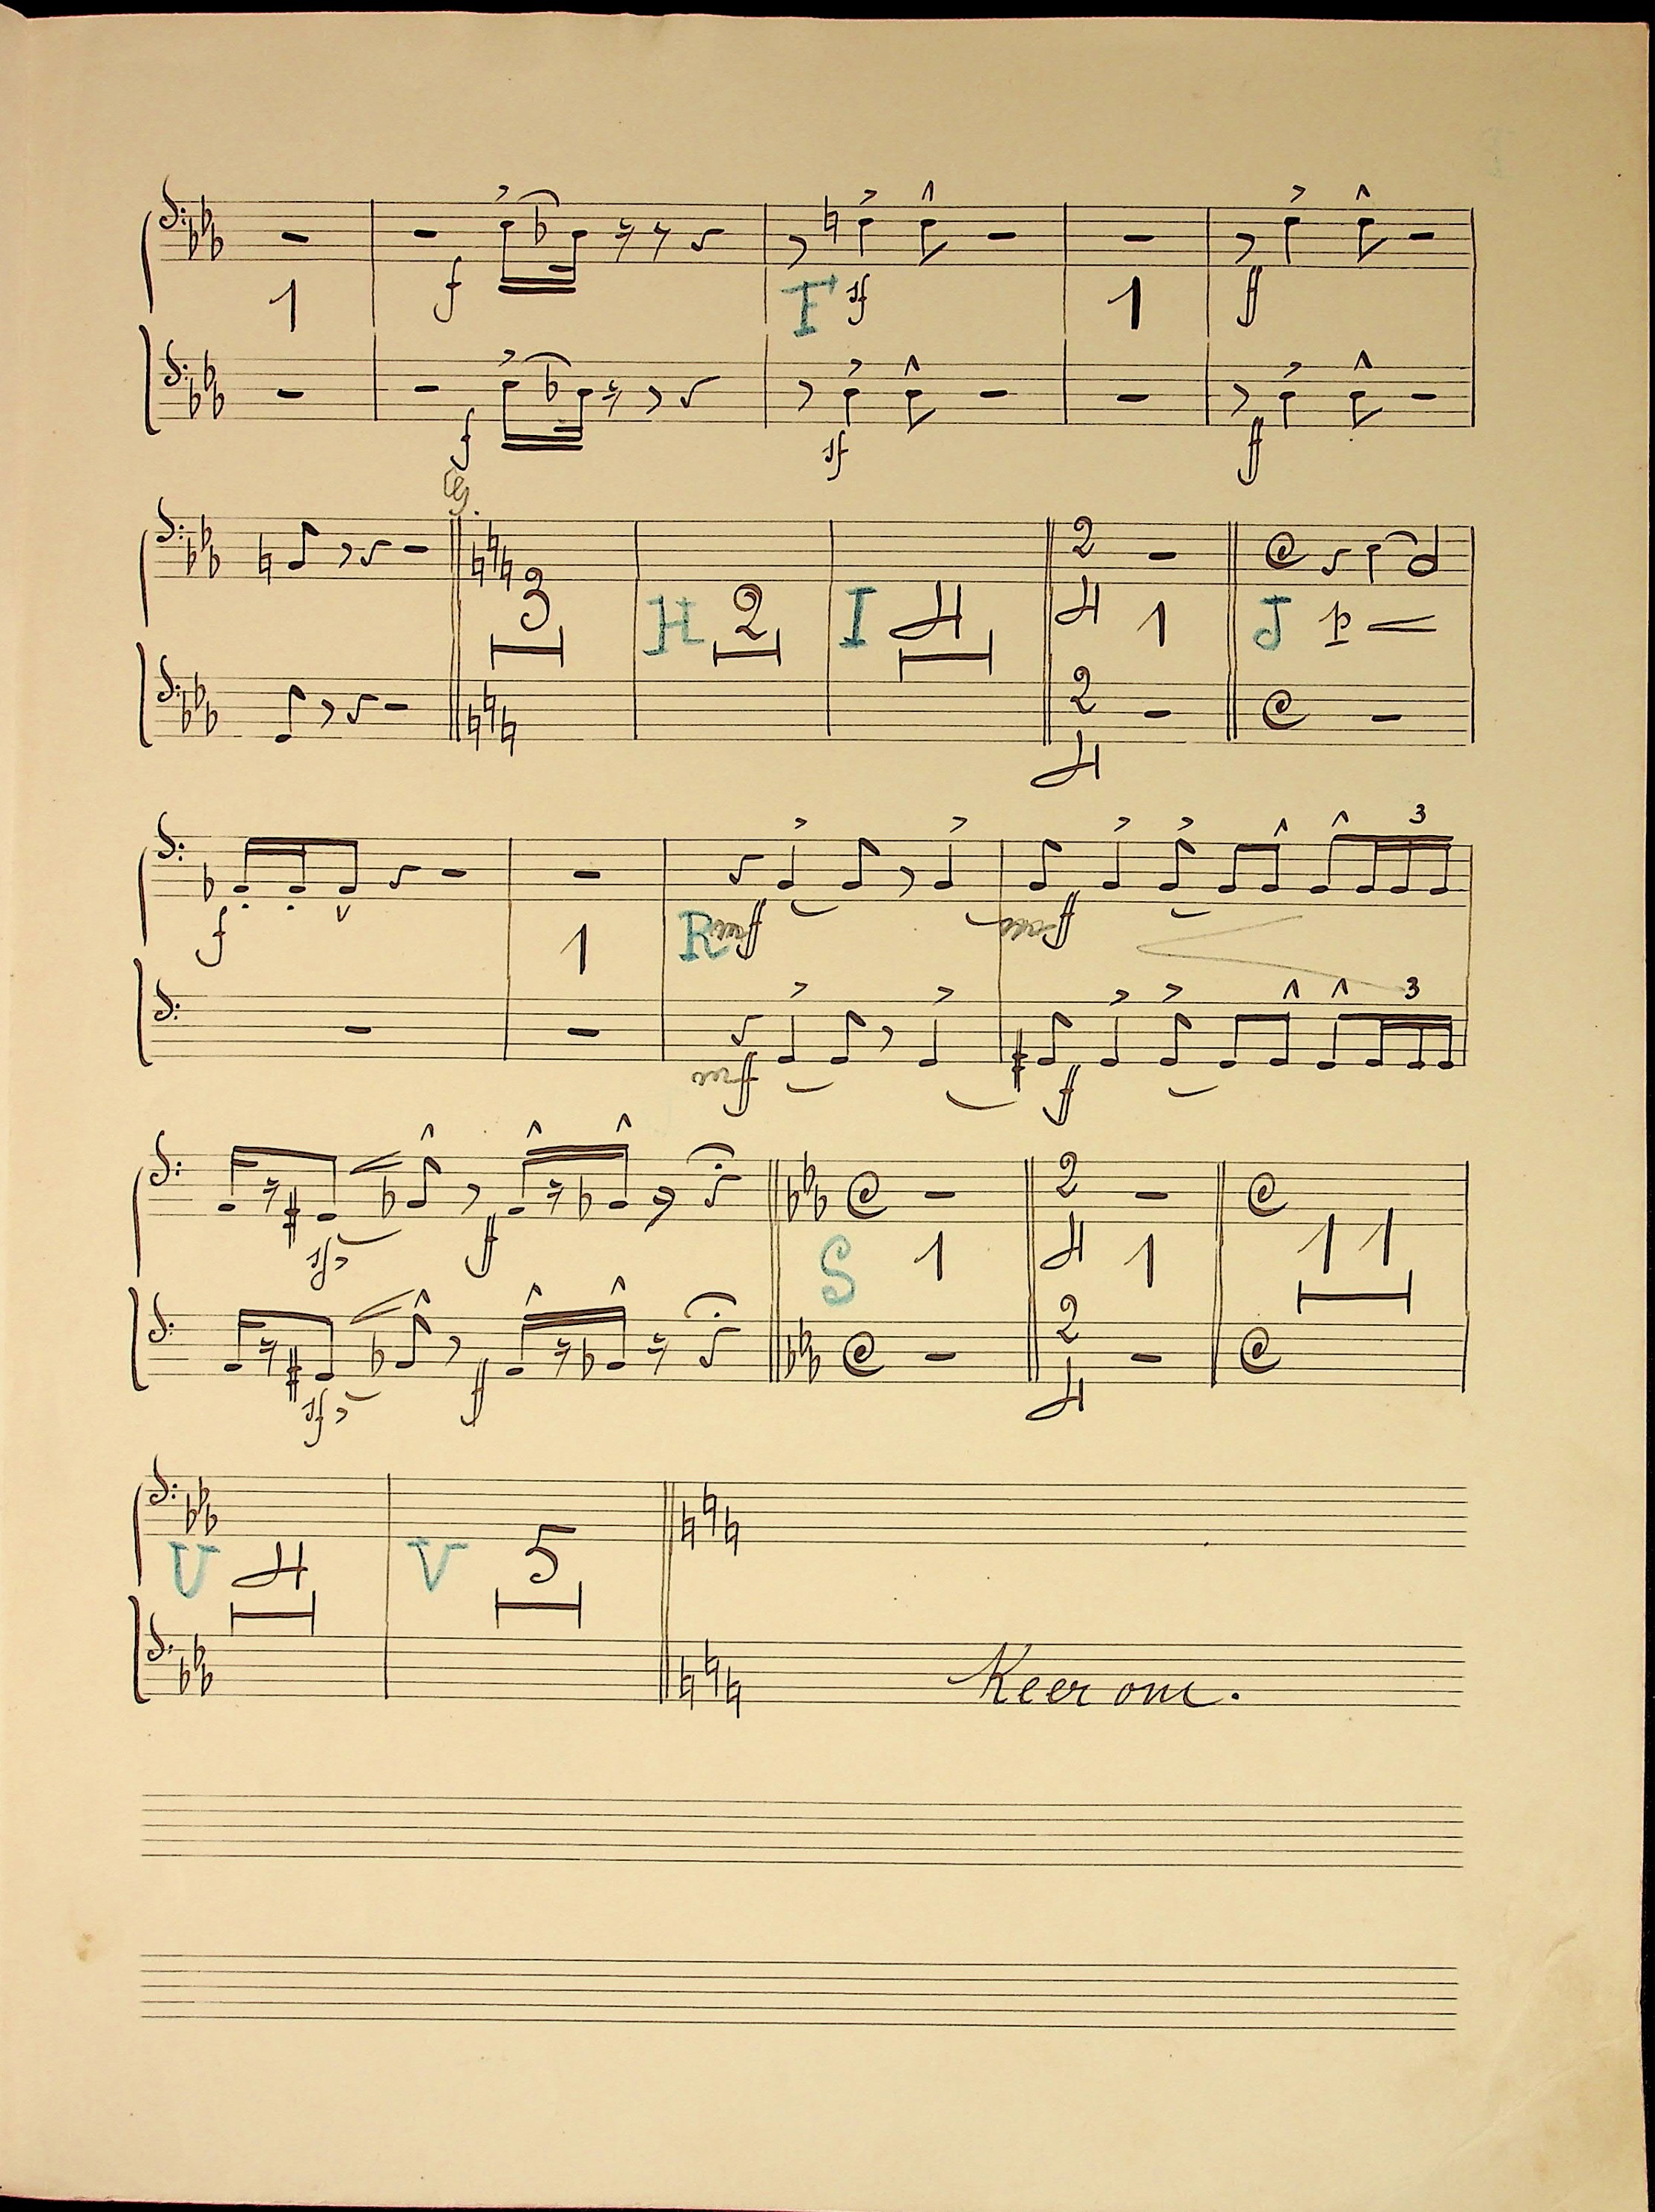 1 f F sf 1 ff
f sf ff
G.
3 H 2 I 4 2 4 1 J p
2 4
3
f 1 R ff ff
3
ff ff
sf ff S 1 2 4 1 11
sf ff 2 4
U 4 V 5
Keer om.